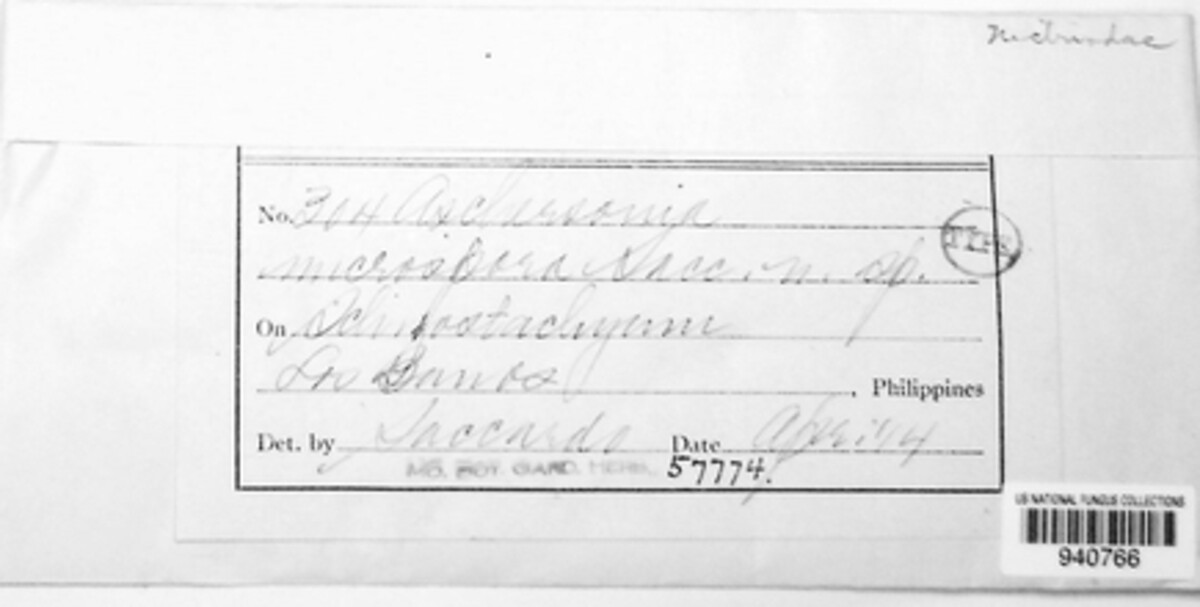 No. 304 Aschersonia
microspora Sacc. n. sp.
TYPE
On Schizostachyum
Los Banos, Philippines
Det. by Saccardo Date Apr. '14
MO. BOT. GARD. HERB. 57774.
US NATIONAL FUNGUS COLLECTIONS
940766